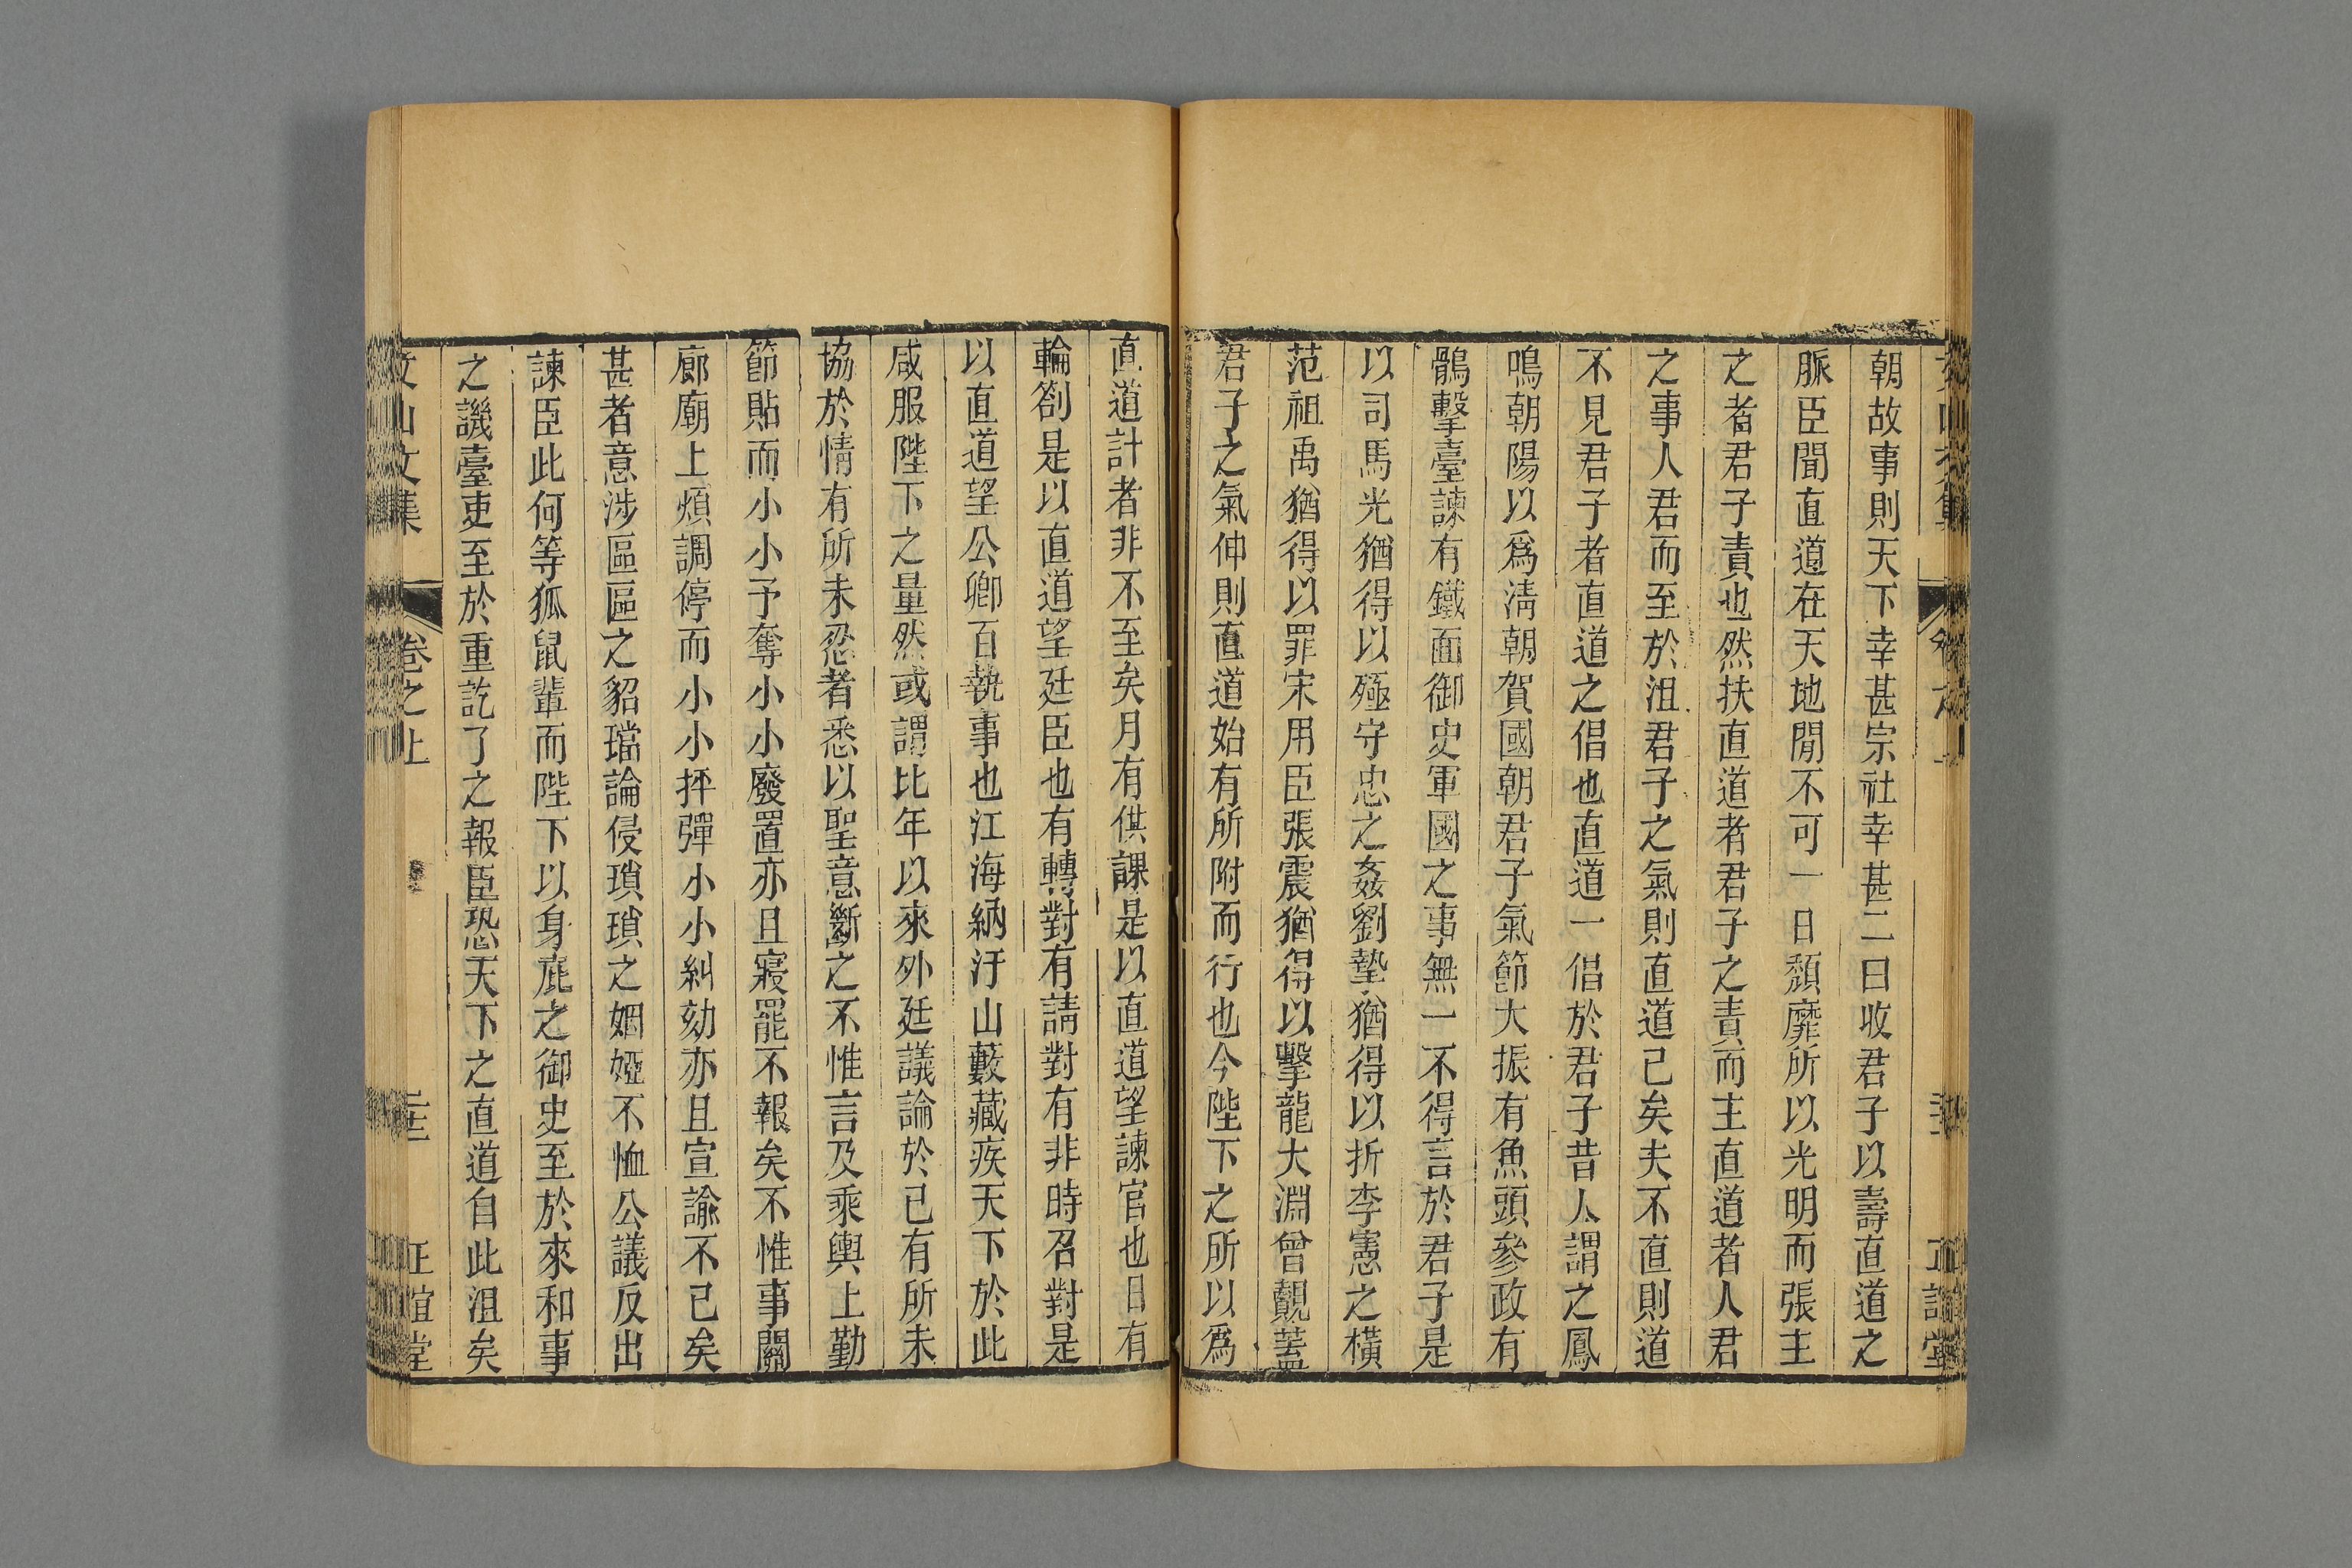 朝故事則天下幸甚宗社幸甚二曰收君子以壽直道之
脈臣聞直道在天地閒不可一日頹靡所以光明而張主
之者君子責也然扶直道者君子之責而主直道者人君
之事人君而至於沮君子之氣則直道已矣夫不直則道
不見君子者直道之倡也直道一倡於君子昔人謂之鳳
鳴朝陽以爲淸朝賀國朝君子氣節大振有魚頭參政有
鶻擊臺諫有鐵面御史軍國之事無一不得言於君子是
以司馬光猶得以殛守忠之姦劉摯猶得以折李憲之橫
范祖禹猶得以罪宋用臣張震猶得以擊龍大淵曾覿蓋
君子之氣伸則直道始有所附而行也今陛下之所以爲
直道計者非不至矣月有供課是以直道望諫官也日有
輪劄是以直道望廷臣也有轉對有請對有非時召對是
以直道望公卿百執事也江海納汙山藪藏疾天下於此
咸服陛下之量然或謂比年以來外廷議論於已有所未
協於情有所未忍者悉以聖意斷之不惟言及乘輿上勤
節貼而小小予奪小小廢置亦且寢罷不報矣不惟事關
廊廟上煩調停而小小抨彈小小糾劾亦且宣諭不已矣
甚者意涉區區之貂璫論侵瑣瑣之姻婭不恤公議反出
諫臣此何等狐鼠輩而陛下以身庇之御史至於來和事
之譏臺吏至於重訖了之報臣恐天下之直道自此沮矣
文山文集 卷之上 正誼堂